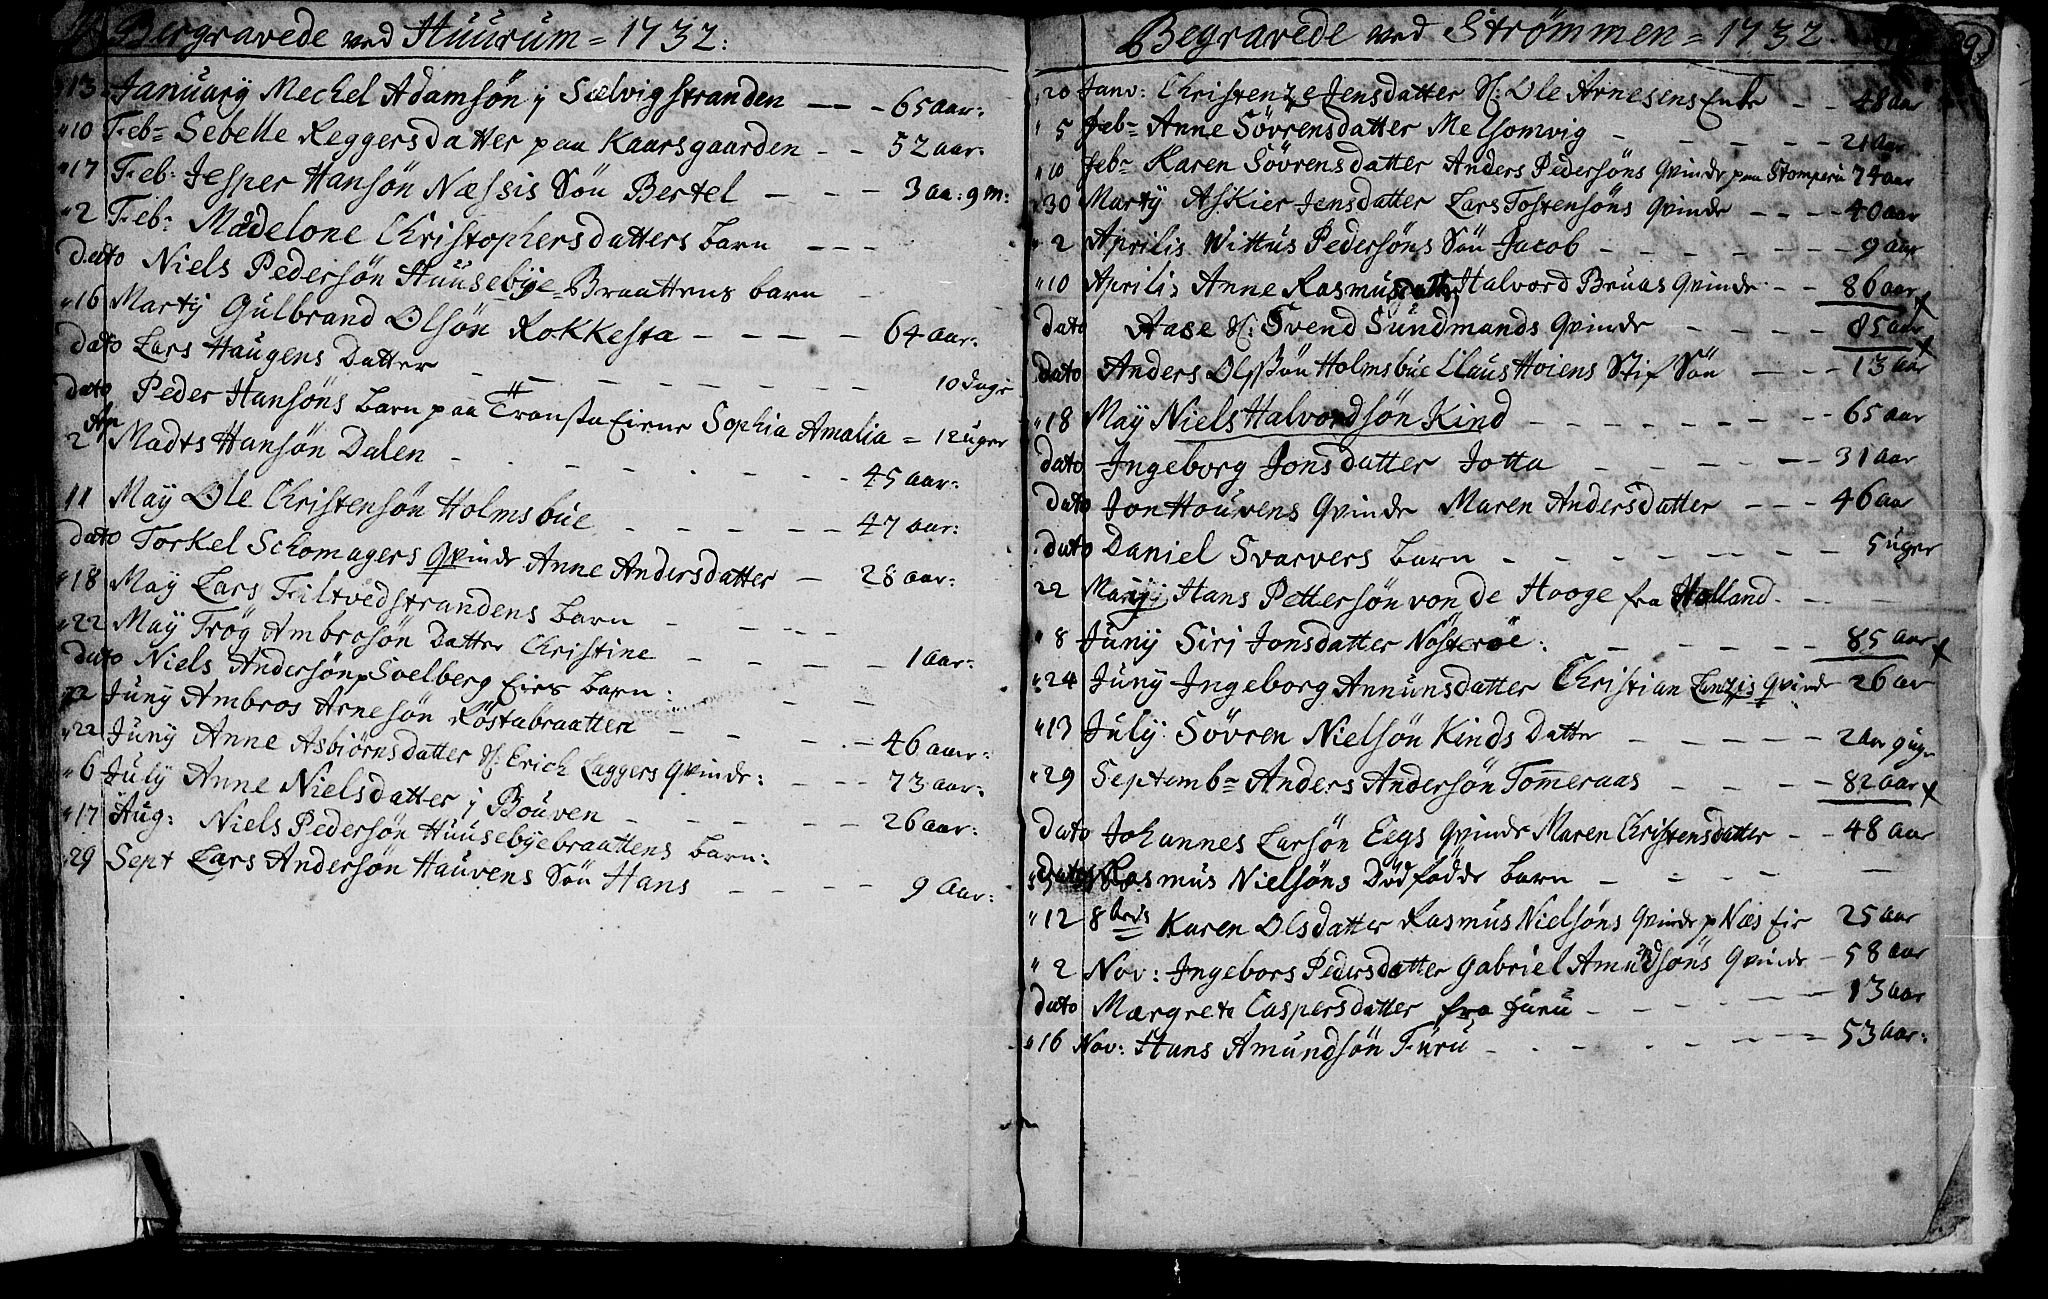 Bergravede ved Huurum = 1732:
"13 January Mechel Adamsön j Sælvigstranden — — - 65 aar:
"10 Feb= Sebelle Reggersdatter paa Kaarsgaarden - - 52 aar:
"17 Feb: Jesper Hansön Næssis Sön Bertel - - - 3 aa: 9 m:
"2 Feb: Madelone Christophersdatters barn - - -
dato Niels Pedersön Huusebye=Braattens barn -
"16 Martij Gulbrand Olsön Rokkesta - - - - 64 aar:
dato Lars Haugens Datter - - - - - - - 10 dage
dato Peder Hansöns barn paa Transta Eirne Sophia Amalia = 12 uger
2 Ap Madts Hansön Dalen - - - - - - - 45 aar:
11 May Ole Christensön Holmsbue - - - - - 47 aar:
dato Torkel Schomagers Qvinde Anne Andersdatter - 28 aar:
"18 May Lars Filtvedstrandens barn - - - -
"22 May Trög Ambrosön Datter Christine - - - - 1 aar:
dato Niels Andersön p Soelberg Eies barn: - -
Juny Ambros Arnesön Röstabraatten - - - - 46 aar:
"22 Juny Anne Asbiörnsdatter Sl: Erich Laggers Qvinde: - - - 73 aar:
"6 July Anne Nielsdatter j Bouven - - - - - 26 aar:
"17 Aug: Niels Pedersön Huusebyebraattens barn:
"29 Sept Lars Andersön Hauvens Sön Hans - - - - 9 aar:
Begravede ved Strömmen = 1732
"20 Janv: Christenze Jensdatter Sl: Ole Arnesens Enke - - 48 aar
" 5 Feb= Anne Sövrensdatter Melsomvig - - - - - 21 aar
"10 Feb= Karen Sövrensdatter Anders Pedersöns Qvinde paa Stomperu 74 aar
"30 Martij Askier Jensdatter Lars Tostensöns Qvinde - - - - 40 aar
" 2 Aprilis Wittus Pedersöns Sön Jacob - - - - - - 9 aar
"10 Aprilis Anne Rasmusdatter Halvord Bruas Qvinde - - 86 aar
dato Aase Sl: Svend Sundmands Qvinde - - - - 85 aar
dato Anders Olssön Holmsbue Claus Hoiens Stif Sön - - - 13 aar
"18 May Niels Halvordsön Kind - - - - - - - 65 aar
dato Ingeborg Jonsdatter Jotta - - - - - 31 aar
dato Jon Houvens Qvinde Maren Andersdatter - - - 46 aar
dato Daniel Svarvers barn - - - - - - - 5 uger
22 May Hans Pettersön von de Hooge fra Holland - - -
" 8 Juny Sirj Jonsdatter Nösteröe: - - - - - 85 aar
"24 Juny Ingeborg Annunsdatter Christian Lanzis Qvinde 26 aar
"13 July: Sövren Nielsön Kinds Datter - - - - - 2 aar 9 uger
"29 Septemb= Anders Andersön Tom̄eraas - - - - 82 aar
dato Johannes Larsön Eegs Qvinde Maren Christensdatter - - 48 aar
dato Rasmus Nielsöns Dödfödde barn - - - - -
"12 8bris Karen Olsdatter Rasmus Nielsöns Qvinde p Næs Eie 25 aar
" 2 Nov: Ingebors Pedersdatter Gabriel Amundsöns Qvinde - 58 aar
dato Margrete Caspersdatter fra Furu - - - - - 13 aar
"16 Nov: Hans Amundsön Furu - - - - - - 53 aar: